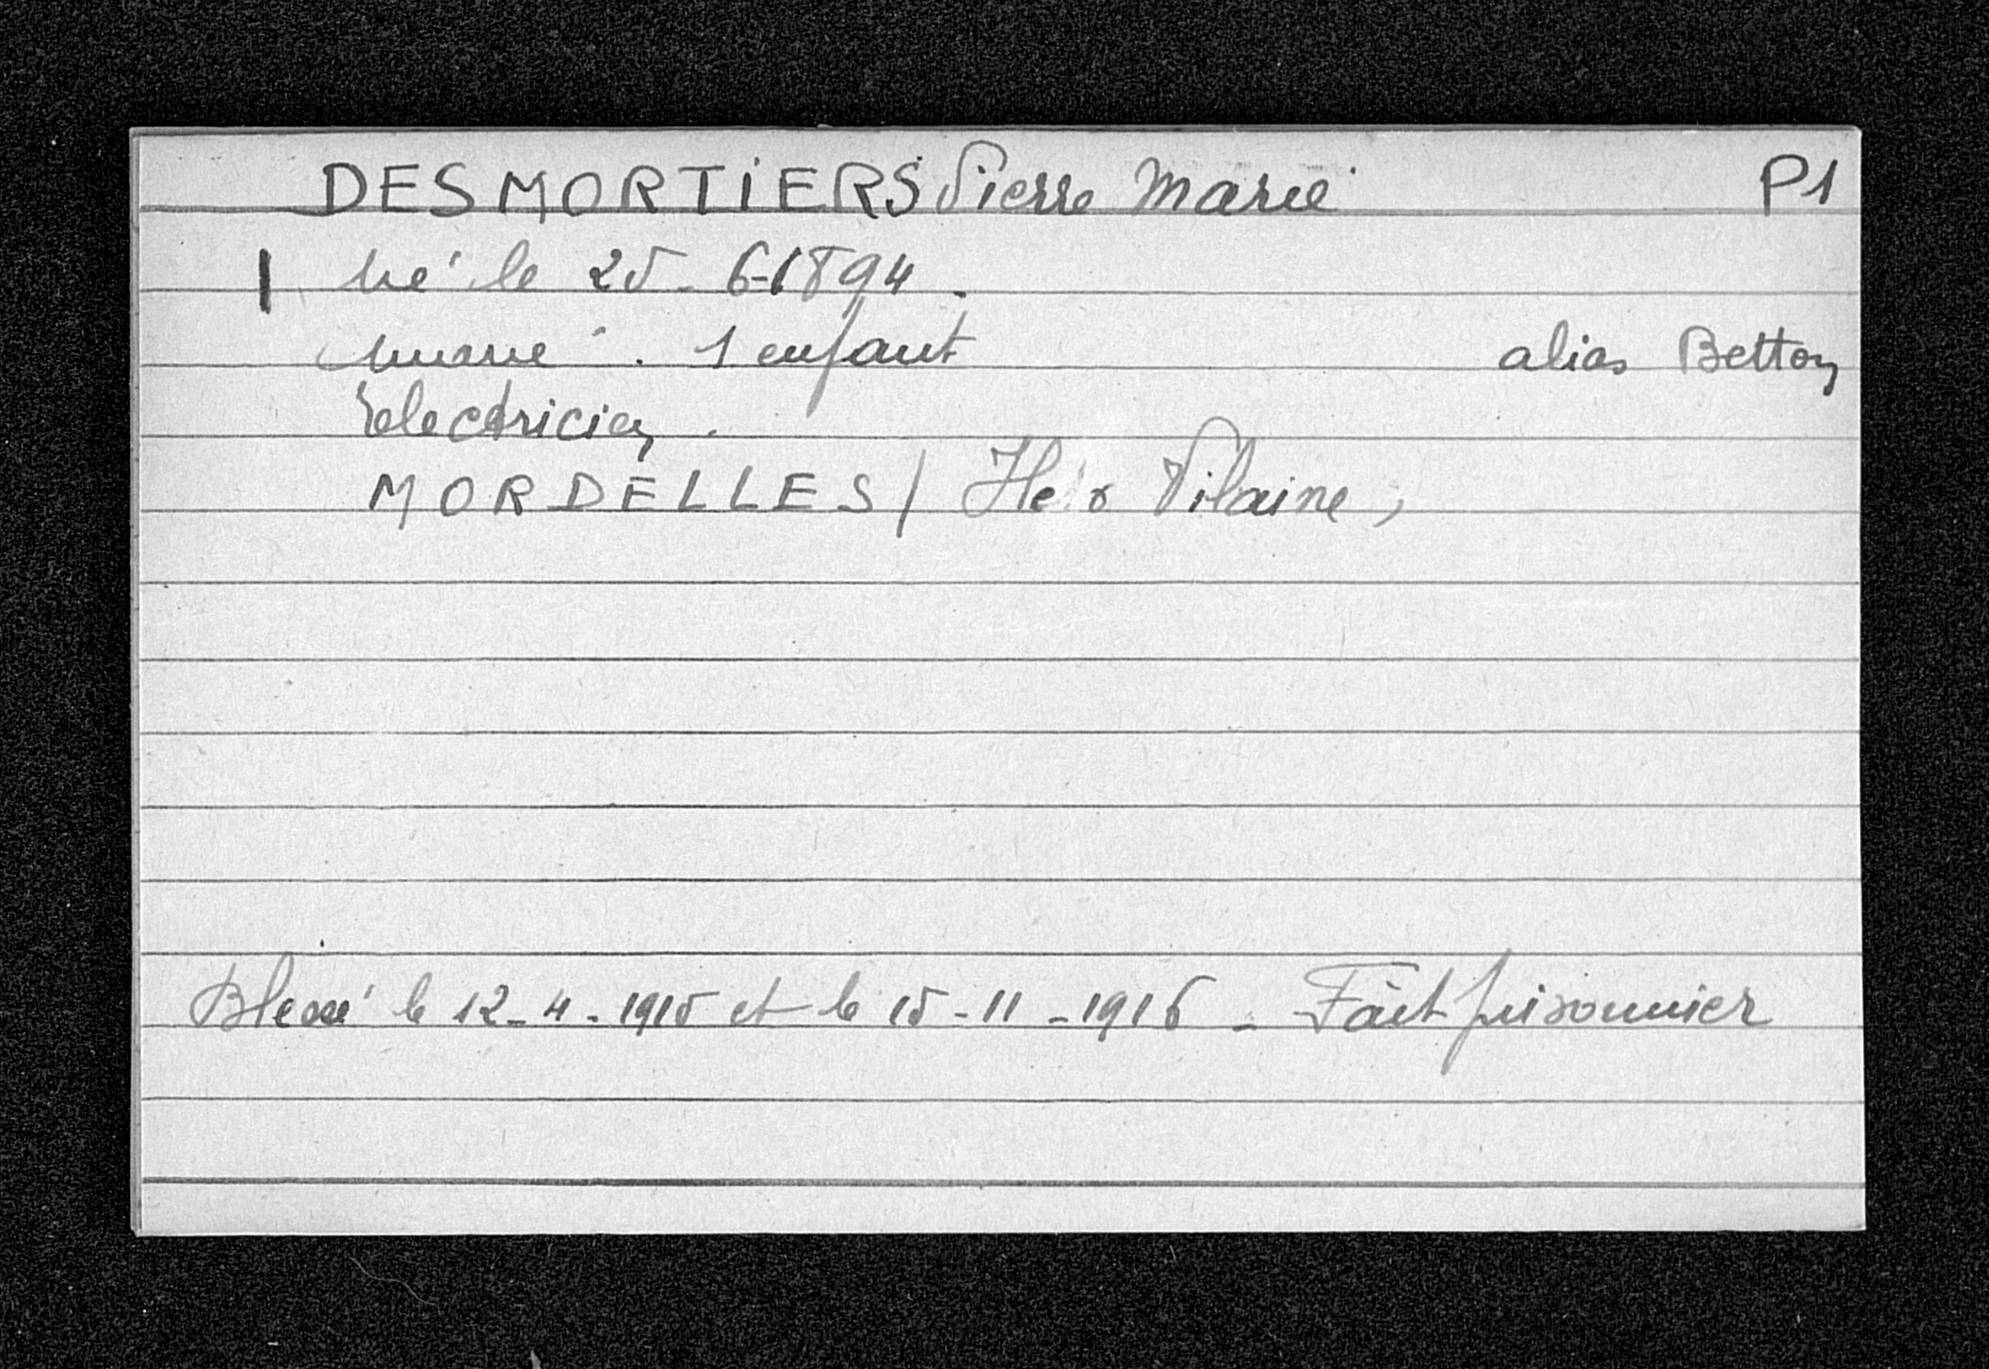 DESMORTIERS Pierre Marie P1
Né le 25-6-1894.
marié. 1 enfant alias Betton
électricien.
MORDELLES / Ile & Vilaine,
Blessé le 12-4-1915 et le 15-11-1916 - Fait prisonnier